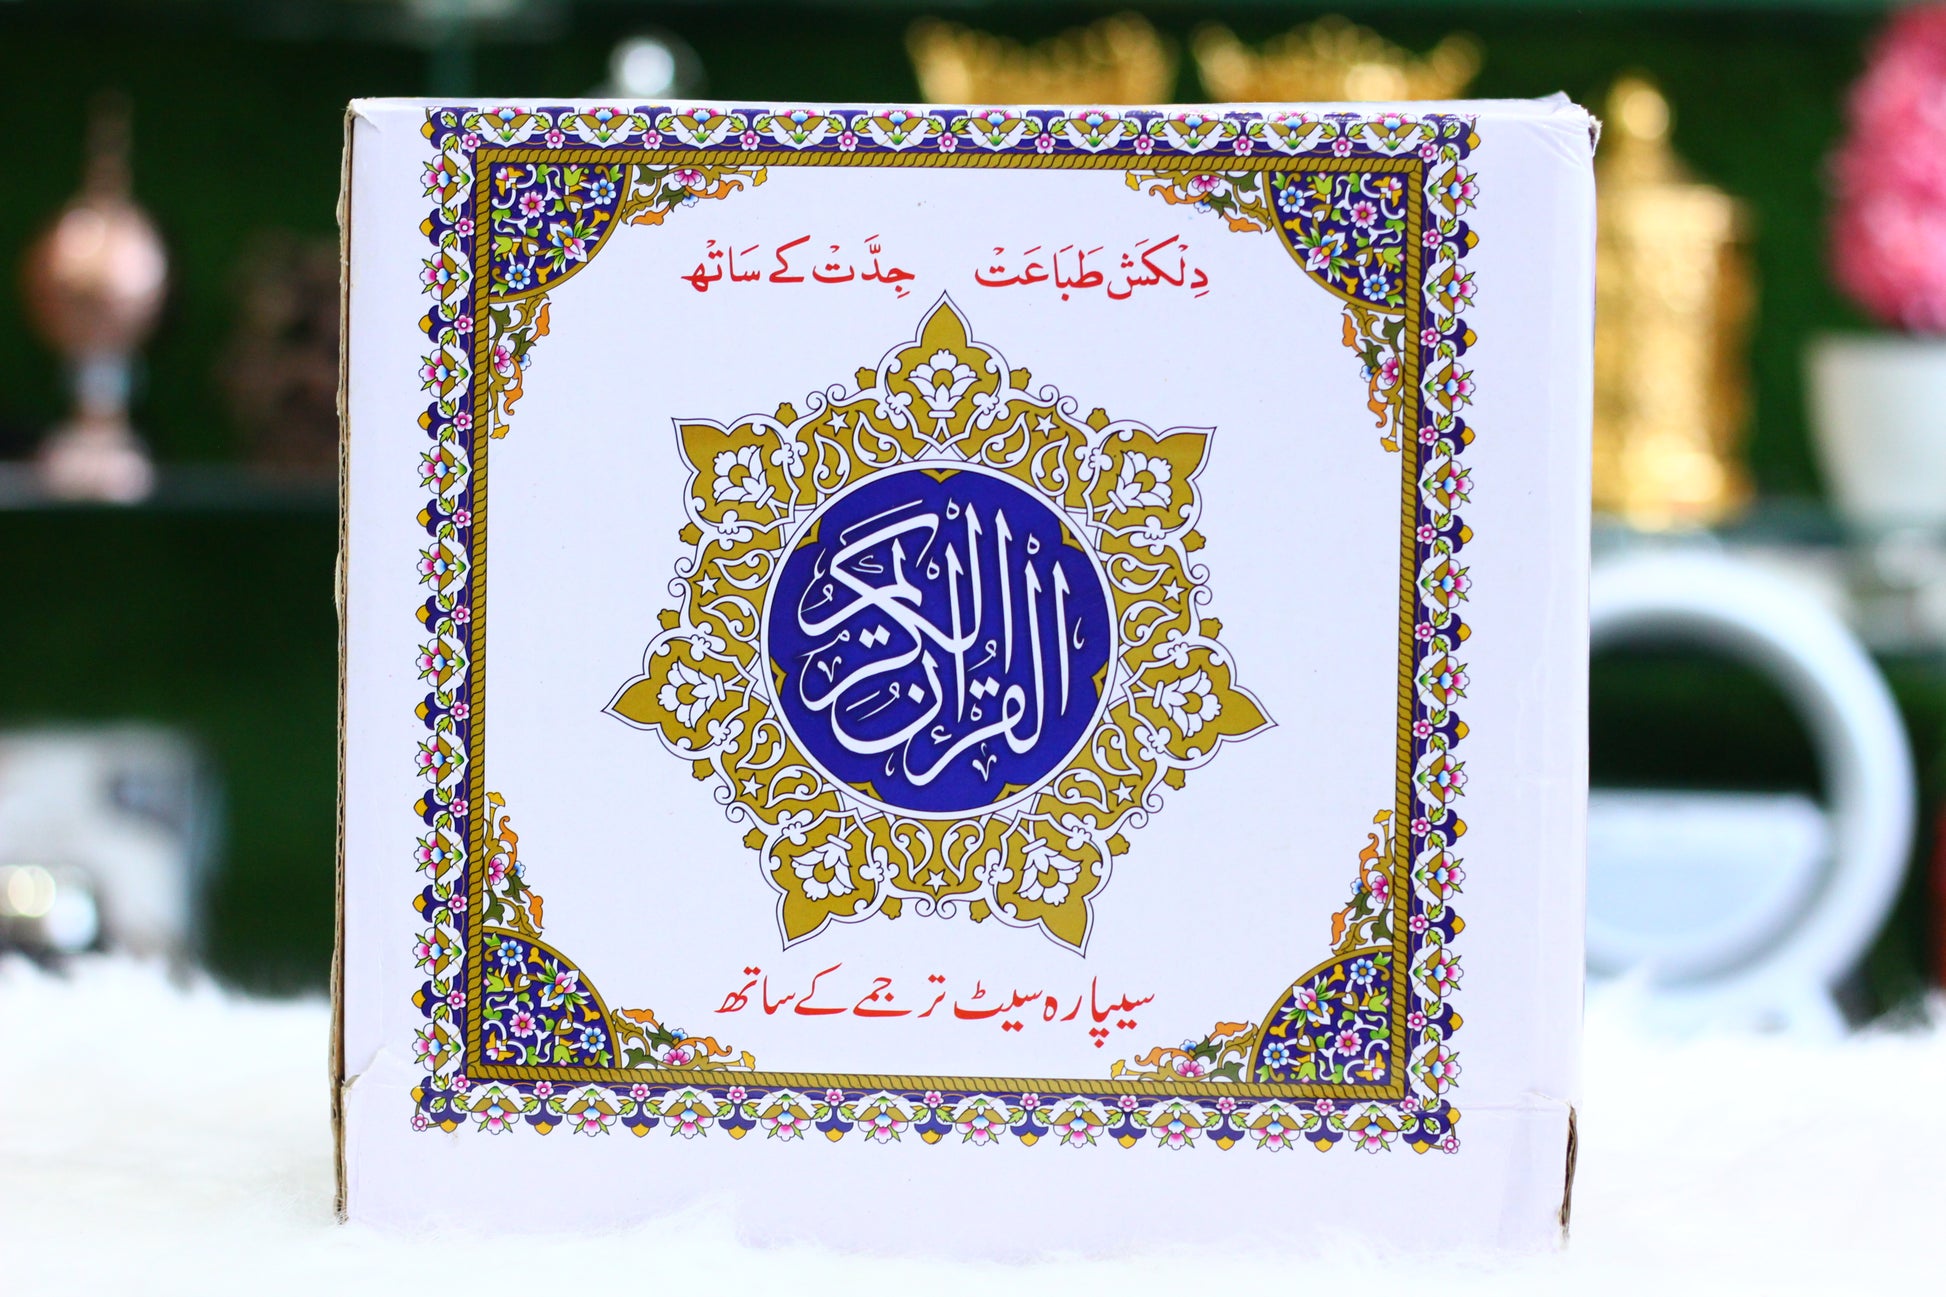 دِلْکَشْ طَبَاعَتْ جِدَّتْ کے سَاتْھ
القرآن الكريم
سیپارہ سیٹ ترجمے کے ساتھ